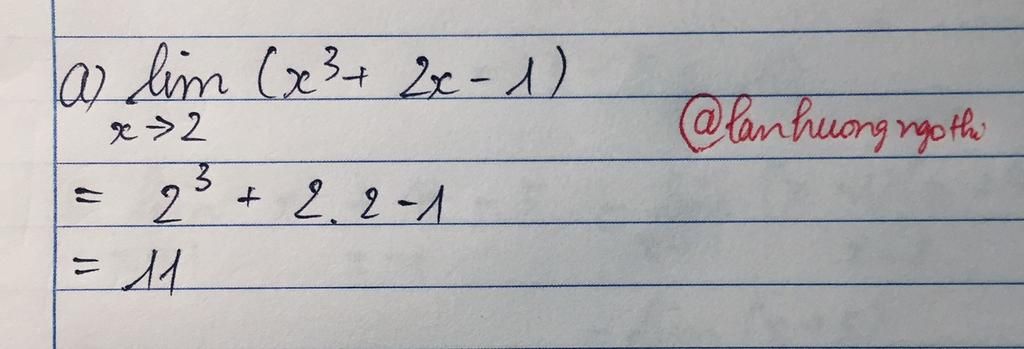 a) lim (x³ + 2x - 1)
x → 2
@lanhuongngothi
= 2³ + 2. 2 - 1
= 11